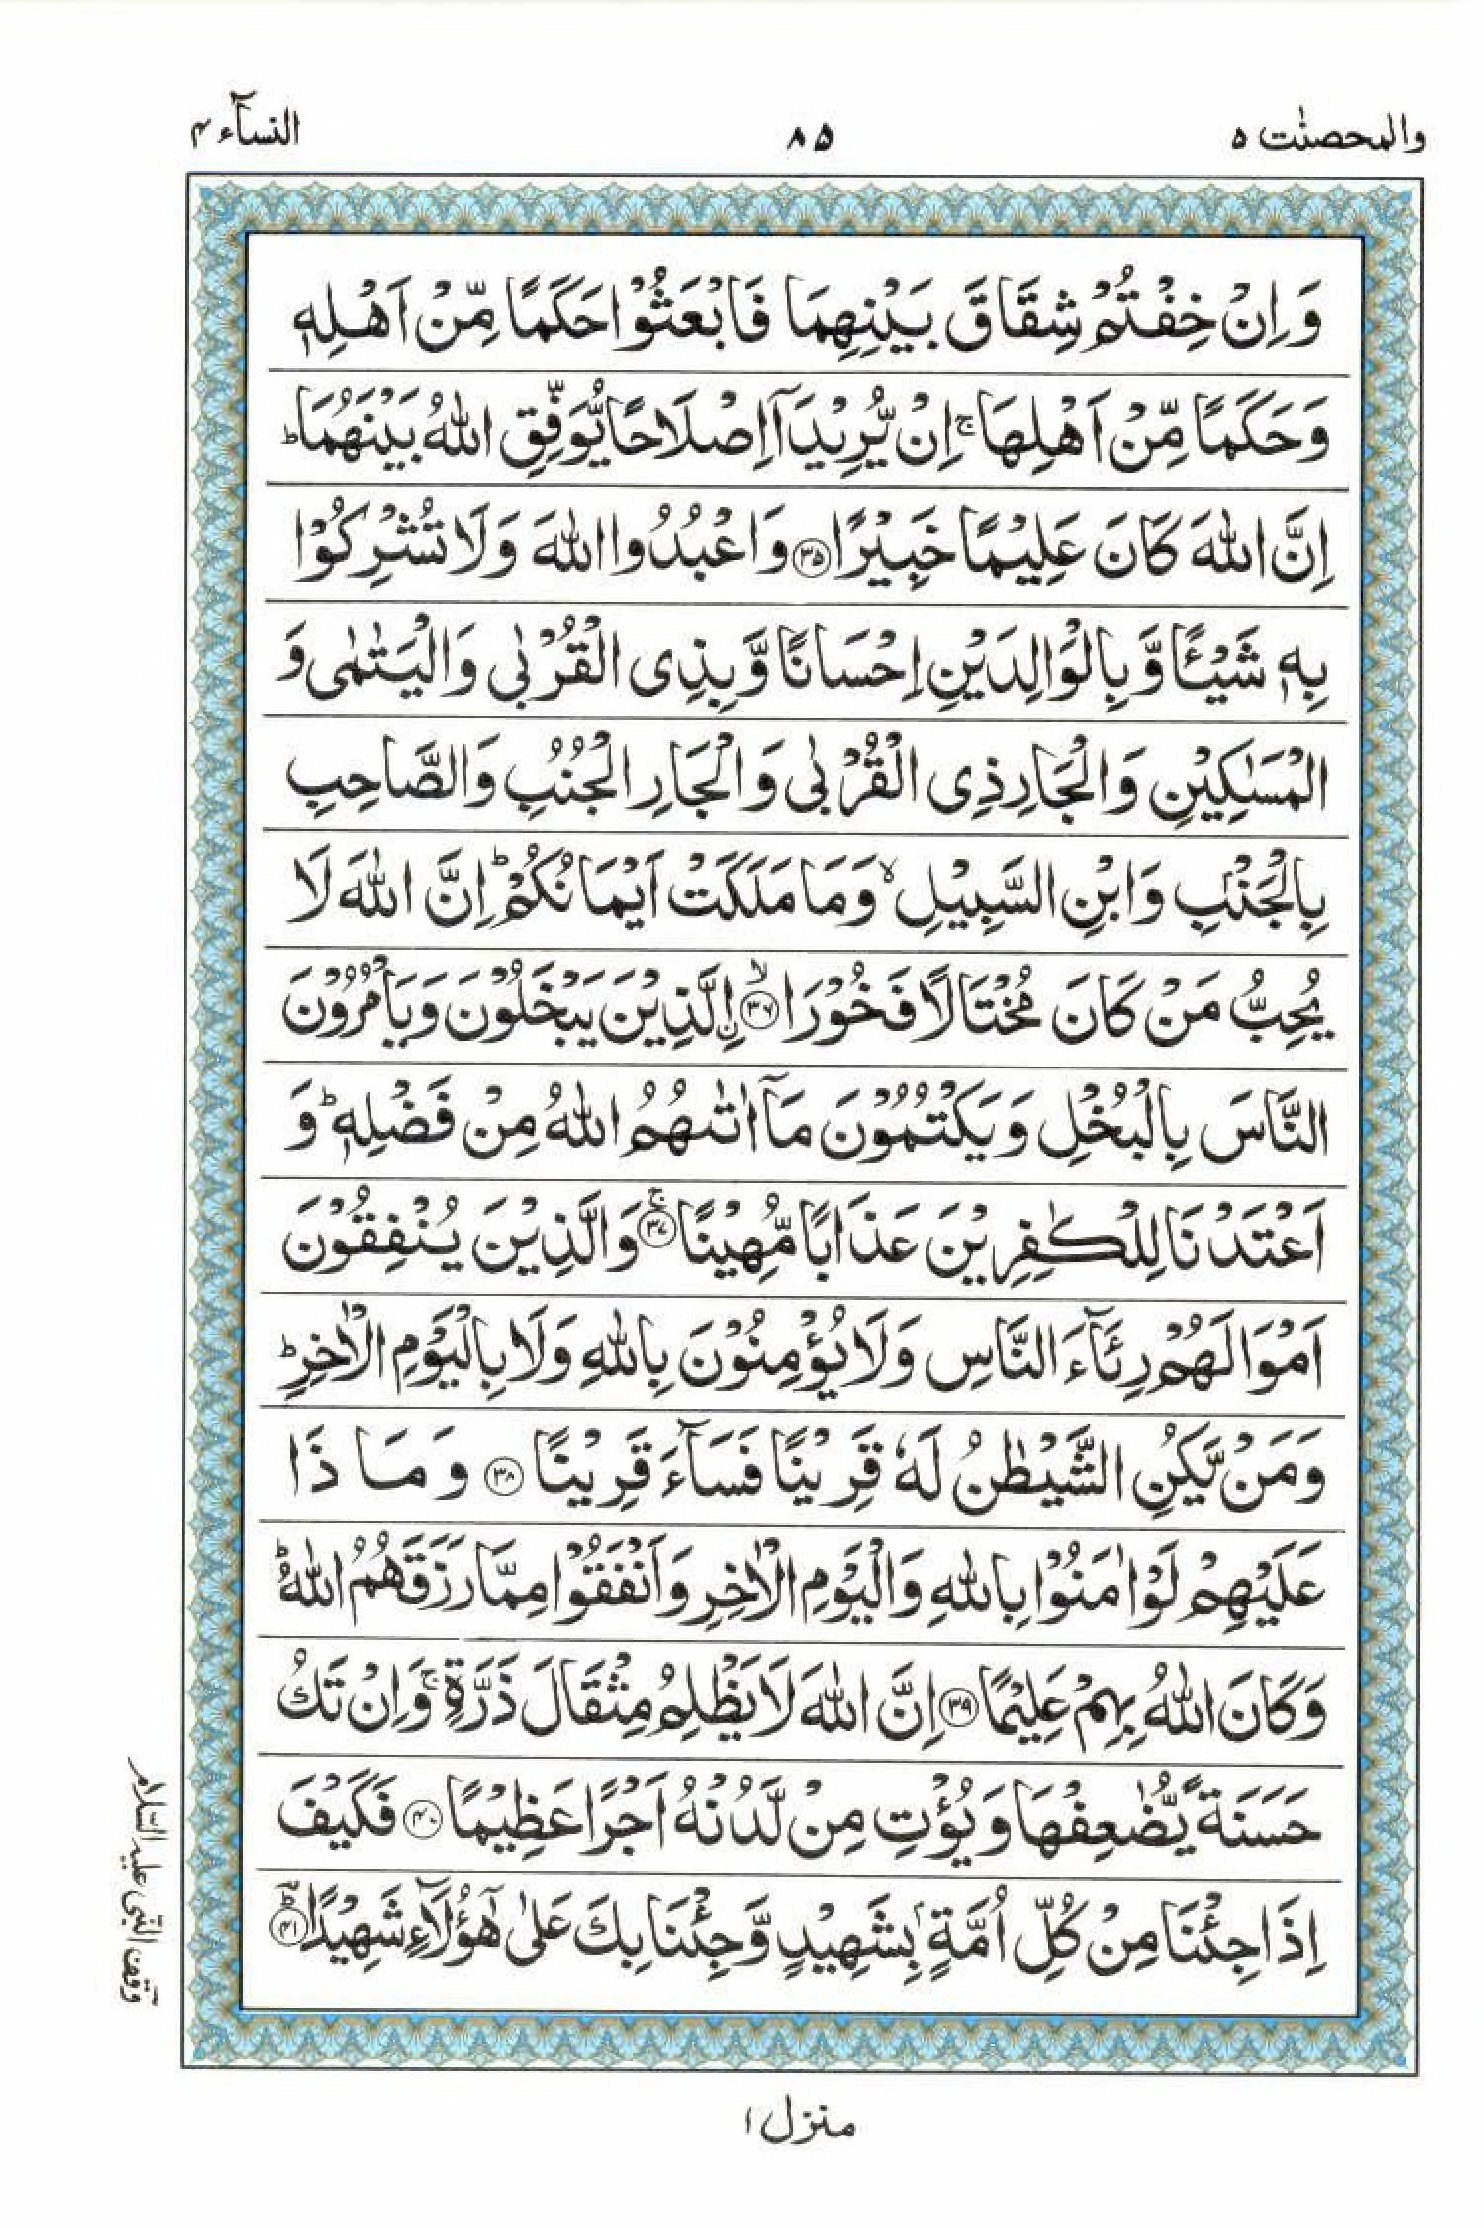 والمحصنٰت ۵
۸۵
النسآء ۴
وَ اِنْ خِفْتُمْ شِقَاقَ بَيْنِهِمَا فَابْعَثُوْا حَكَمًا مِّنْ اَهْلِهٖ
وَحَكَمًا مِّنْ اَهْلِهَا ۚ اِنْ يُّرِيْدَاۤ اِصْلَاحًا يُّوَفِّقِ اللّٰهُ بَيْنَهُمَا ؕ
اِنَّ اللّٰهَ كَانَ عَلِيْمًا خَبِيْرًا ﴿۳۵﴾ وَ اعْبُدُوا اللّٰهَ وَلَا تُشْرِكُوْا
بِهٖ شَيْـًٔا وَّ بِالْوَالِدَيْنِ اِحْسَانًا وَّ بِذِى الْقُرْبٰى وَالْيَتٰمٰى وَ
الْمَسٰكِيْنِ وَ الْجَارِ ذِى الْقُرْبٰى وَ الْجَارِ الْجُنُبِ وَالصَّاحِبِ
بِالْجَنْۢبِ وَ ابْنِ السَّبِيْلِ ۙ وَمَا مَلَكَتْ اَيْمَانُكُمْ ؕ اِنَّ اللّٰهَ لَا
يُحِبُّ مَنْ كَانَ مُخْتَالًا فَخُوْرَا ۙ﴿۳۶﴾ اۨلَّذِيْنَ يَبْخَلُوْنَ وَ يَاْمُرُوْنَ
النَّاسَ بِالْبُخْلِ وَ يَكْتُمُوْنَ مَاۤ اٰتٰىهُمُ اللّٰهُ مِنْ فَضْلِهٖ ؕ وَ
اَعْتَدْنَا لِلْكٰفِرِيْنَ عَذَابًا مُّهِيْنًا ۚ﴿۳۷﴾ وَ الَّذِيْنَ يُنْفِقُوْنَ
اَمْوَالَهُمْ رِئَآءَ النَّاسِ وَلَا يُؤْمِنُوْنَ بِاللّٰهِ وَلَا بِالْيَوْمِ الْاٰخِرِ ؕ
وَمَنْ يَّكُنِ الشَّيْطٰنُ لَهٗ قَرِيْنًا فَسَآءَ قَرِيْنًا ﴿۳۸﴾ وَمَا ذَا
عَلَيْهِمْ لَوْ اٰمَنُوْا بِاللّٰهِ وَالْيَوْمِ الْاٰخِرِ وَ اَنْفَقُوْا مِمَّا رَزَقَهُمُ اللّٰهُ ؕ
وَ كَانَ اللّٰهُ بِهِمْ عَلِيْمًا ﴿۳۹﴾ اِنَّ اللّٰهَ لَا يَظْلِمُ مِثْقَالَ ذَرَّةٍ ۚ وَ اِنْ تَكُ
حَسَنَةً يُّضٰعِفْهَا وَ يُؤْتِ مِنْ لَّدُنْهُ اَجْرًا عَظِيْمًا ﴿۴۰﴾ فَكَيْفَ
اِذَا جِئْنَا مِنْ كُلِّ اُمَّةٍۭ بِشَهِيْدٍ وَّ جِئْنَا بِكَ عَلٰى هٰٓؤُلَآءِ شَهِيْدًا ؕ﴿۴۱﴾
وقف النبى عليه السّلام
منزل ۱